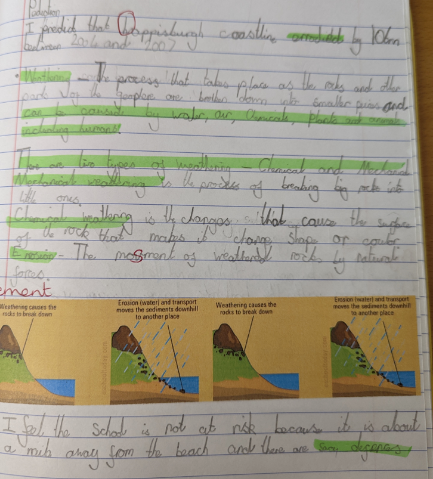 I predict that Happisburgh coastline erroded by 10km
between 2006 and 2007
• Weathering - The process that takes place as the rocks and other
parts of the are broken down into smaller pieces and
can be caused by water, air, chemicals, plants and animals
including humans
There are two types of weathering - Chemical and Mechanical
Mechanical weathering is the process of breaking big rocks into
little ones.
Chemical weathering is the changes that cause the surface
of the rock that makes it change shape or color
Erosion - The movement of weathered rocks by natural
forces.
ement
Weathering causes the
rocks to break down
Erosion (water) and transport
moves the sediments downhill
to another place
Weathering causes the
rocks to break down
Erosion (water) and transport
moves the sediments downhill
to another place
I feel the school is not at risk because it is about
a mile away from the beach and there are sea defences